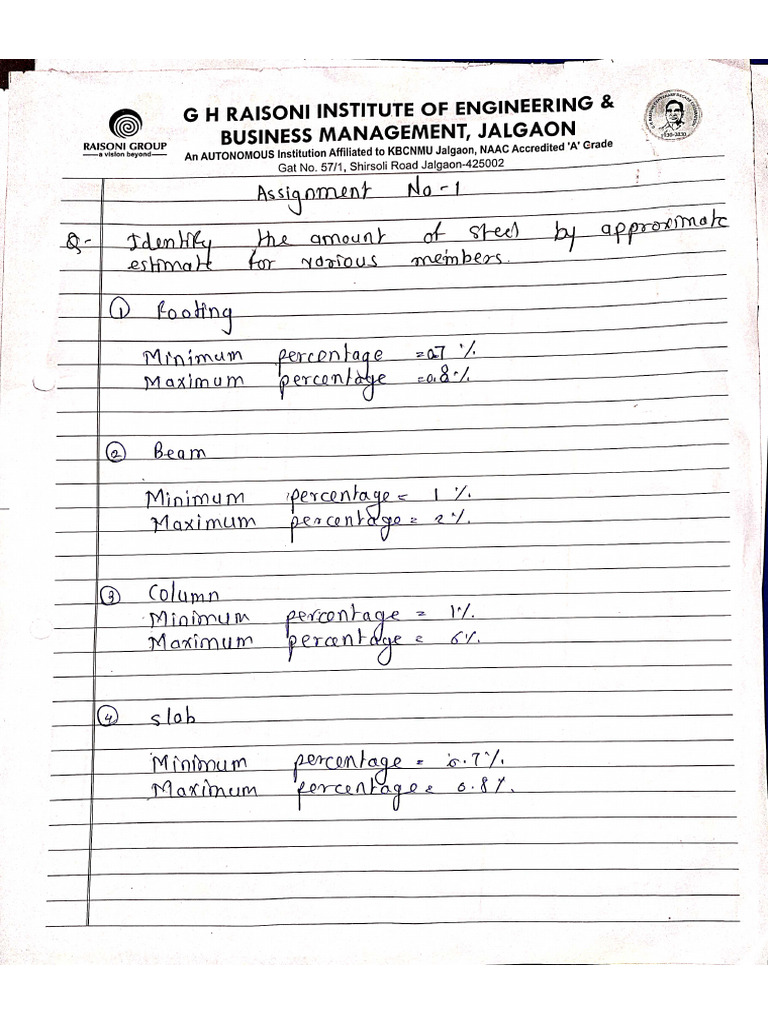 G H RAISONI INSTITUTE OF ENGINEERING &
BUSINESS MANAGEMENT, JALGAON
RAISONI GROUP
a vision beyond
An AUTONOMOUS Institution Affiliated to KBCNMU Jalgaon, NAAC Accredited 'A' Grade
Gat No. 57/1, Shirsoli Road Jalgaon-425002
Assignment No - 1
Q- Identify the amount of steel by approximate
estimate for various members.
① Footing
Minimum percentage = 0.7 %
Maximum percentage = 0.8 %
② Beam
Minimum percentage = 1 %.
Maximum percentage = 2 %.
③ Column
Minimum percentage = 1%.
Maximum percentage = 6%.
④ slab
Minimum percentage = 0.7%.
Maximum percentage = 0.8%.